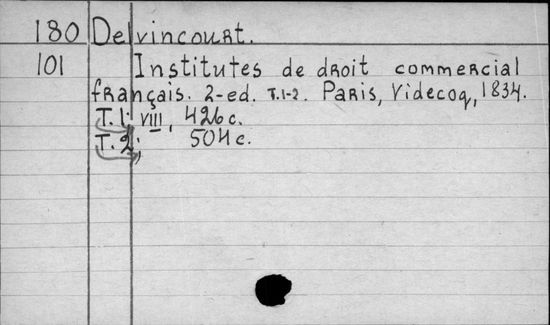 180 Delvincourt.
101 Institutes de droit commercial
français. 2-ed. T.1-2. Paris, Videcoq, 1834.
T.1; VIII, 426 c.
T.2; 504 c.